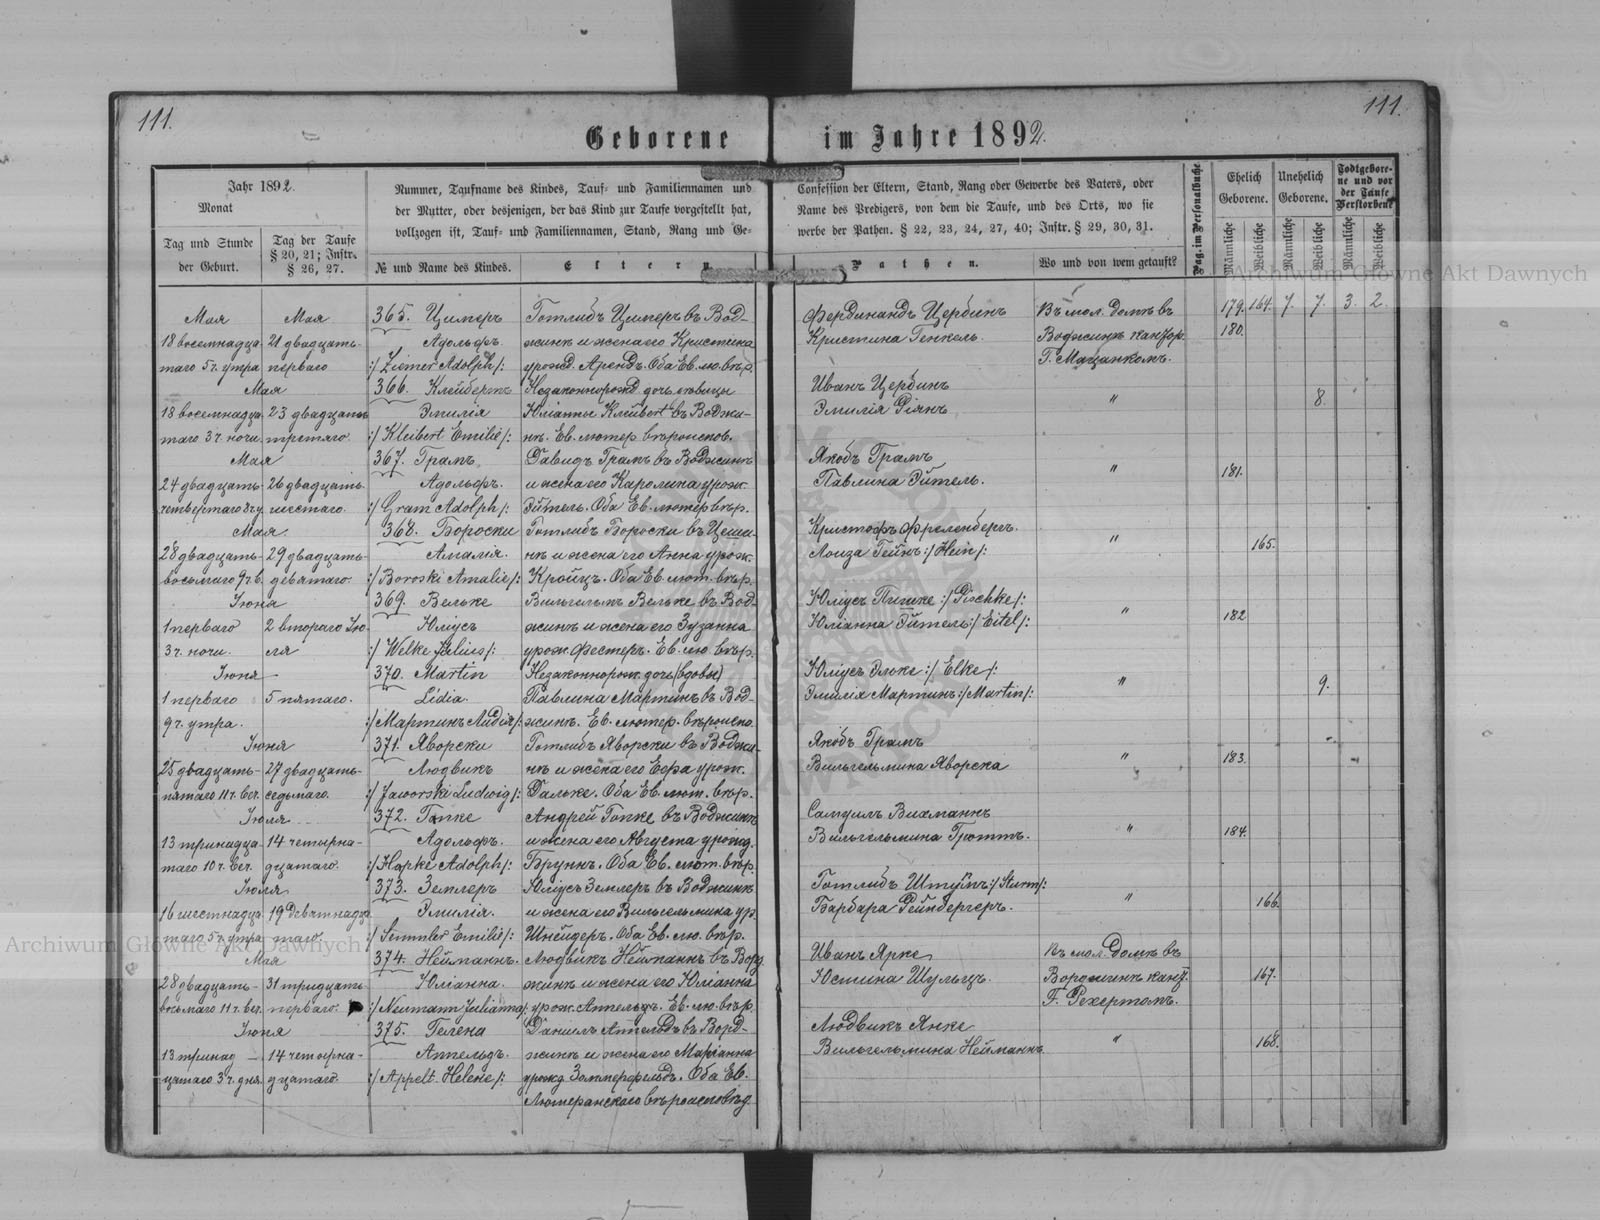 111.
111.
Geborene im Jahre 1892.
Jahr 1892.
Monat
Tag und Stunde
der Geburt.
Tag der Taufe
§ 20, 21; Instr.
§ 26, 27.
Nummer, Taufname des Kindes, Tauf- und Familiennamen und
der Mutter, oder desjenigen, der das Kind zur Taufe vorgestellt hat,
vollzogen ist, Tauf- und Familiennamen, Stand, Rang und Ge-
№ und Name des Kindes.
Eltern
Confession der Eltern, Stand, Rang oder Gewerbe des Vaters, oder
Name des Predigers, von dem die Taufe, und des Orts, wo sie
werbe der Pathen. § 22, 23, 24, 27, 40; Instr. § 29, 30, 31.
Pathen.
Wo und von wem getauft?
Pag. im Personalbuche
Ehelich
Geborene.
Unehelich
Geborene.
Todtgebore-
ne und vor
der Taufe
Verstorbene
Männliche
Weibliche
Männliche
Weibliche
Männliche
Weibliche
Мая Мая 365. Цимеръ Готлибъ Цимеръ въ Вод-
18 восемнадца- 21 двадцать Адольфъ. жинк и жена его Кристина
таго 5 ч. утра перваго :/Ziemer Adolph/: урожд. Арендъ. Оба Ев. лю. вѣр.
Фердинандъ Цербинъ Въ мол. домѣ въ 179. 164. 7. 7. 3. 2.
Кристина Генкель. Воджинк кантор. 180.
Г. Мацанкомъ.
Мая 366. Клейбертъ Незаконнорожд. дочь дѣвицы
18 восемнадца- 23 двадцать Эмилія Юліанны Клейbert въ Воджи-
таго 3 ч. ночи. третяго. :/Kleibert Emilie/: нк. Ев. лютер. вѣроиспов.
Иванъ Цербинъ
Эмилія Тіянъ " 8.
Мая 367. Грамъ Давидъ Грамъ въ Воджинк
24 двадцать 26 двадцать Адольфъ. и жена его Каролина урож.
четвертаго 8 ч. у шестаго. :/Gram Adolph/: Эйтель. Оба Ев. лютер вѣр.
Якобъ Грамъ
Павлина Эйтель. " 181.
Мая 368. Бороски Готлибъ Бороски въ Цеши-
28 двадцать- 29 двадцать- Амалія. нк и жена его Анна урож.
восьмаго 9 ч. в. девятаго. :/Boroski Amalie/: Кройцъ. Оба Ев. лют. вѣр.
Кристофъ Фреленбергъ.
Лоиза Гейнъ :/Hein/: " 165.
Іюня 369. Вельке Вильгельмъ Вельке въ Вод-
1 перваго 2 втораго Ію- Юліусъ жинк и жена его Зузанна
3 ч. ночи. ля :/Welke Julius/: урож. Фестеръ. Ев. лю. вѣр.
Юліусъ Пишке :/Pischke/:
Юліанна Эйтель :/Eitel/: " 182
Іюня 370. Martin Незаконнорож. дочь (вдовы)
1 перваго 5 пятаго. Lidia. Павлина Мартинъ въ Вод-
9 ч. утра. :/Мартинъ Лидія/: жинк. Ев. лютер. вѣроиспо.
Юліусъ Эльке :/Elke/:
Эмилія Мартинъ :/Martin/: " 9.
Іюня 371. Яворски Готлибъ Яворски въ Воджи-
25 двадцать- 27 двадцать- Людвикъ нк и жена его Ефа урож.
пятаго 11 ч. веч. седьмаго. :/Jaworski Ludwig/: Дальке. Оба Ев. лют. вѣр.
Якобъ Грамъ
Вильгельмина Яворска " 183.
Іюля 372. Гапке Андрей Гапке въ Воджинк
13 тринадца- 14 четырна- Адольфъ. и жена его Августа урожд.
таго 10 ч. веч. дцатаго. :/Hapke Adolph/: Бруннъ. Оба Ев. лют. вѣр.
Самуилъ Вихманнъ
Вильгельмина Гроттъ. " 184.
Іюля 373. Земмеръ Юліусъ Земмеръ въ Воджинк
16 шестнадца- 19 девятнадца- Эмилія. и жена его Вильгельмина ур.
таго 5 ч. утра таго. :/Semmler Emilie/: Шнейдеръ. Оба Ев. лю. вѣр.
Готлибъ Штурмъ :/Sturm/:
Барбара Рейнбергеръ. " 166.
Мая 374. Нейманнъ. Людвикъ Нейманнъ въ Ворд-
28 двадцать- 31 тридцать Юліанна. жинк и жена его Юліанна
восьмаго 11 ч. веч. перваго. :/Neumann Julianna/: урож. Аппельтъ. Ев. лю. вѣр.
Иванъ Ярке Въ мол. домѣ въ
Юстина Шульцъ. Ворджинк кант. 167.
Г. Рехертомъ.
Іюня 375. Гелена Даніилъ Аппельдъ въ Ворд-
13 тринад- 14 четырна- Аппельдъ. жинк и жена его Маріанна
цатаго 3 ч. дня. дцатаго. :/Appelt Helene/: урожд. Зоммерфельдъ. Оба Ев.
Лютеранскаго вѣроисповѣд.
Людвикъ Янке
Вильгельмина Нейманнъ " 168.
Archiwum Główne Akt Dawnych
Archiwum Główne Akt Dawnych